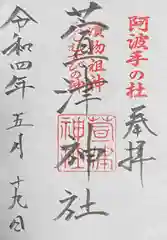 阿波手の社
奉拝
漬物祖神
萱津神社
萱津神社
令和四年五月十九日